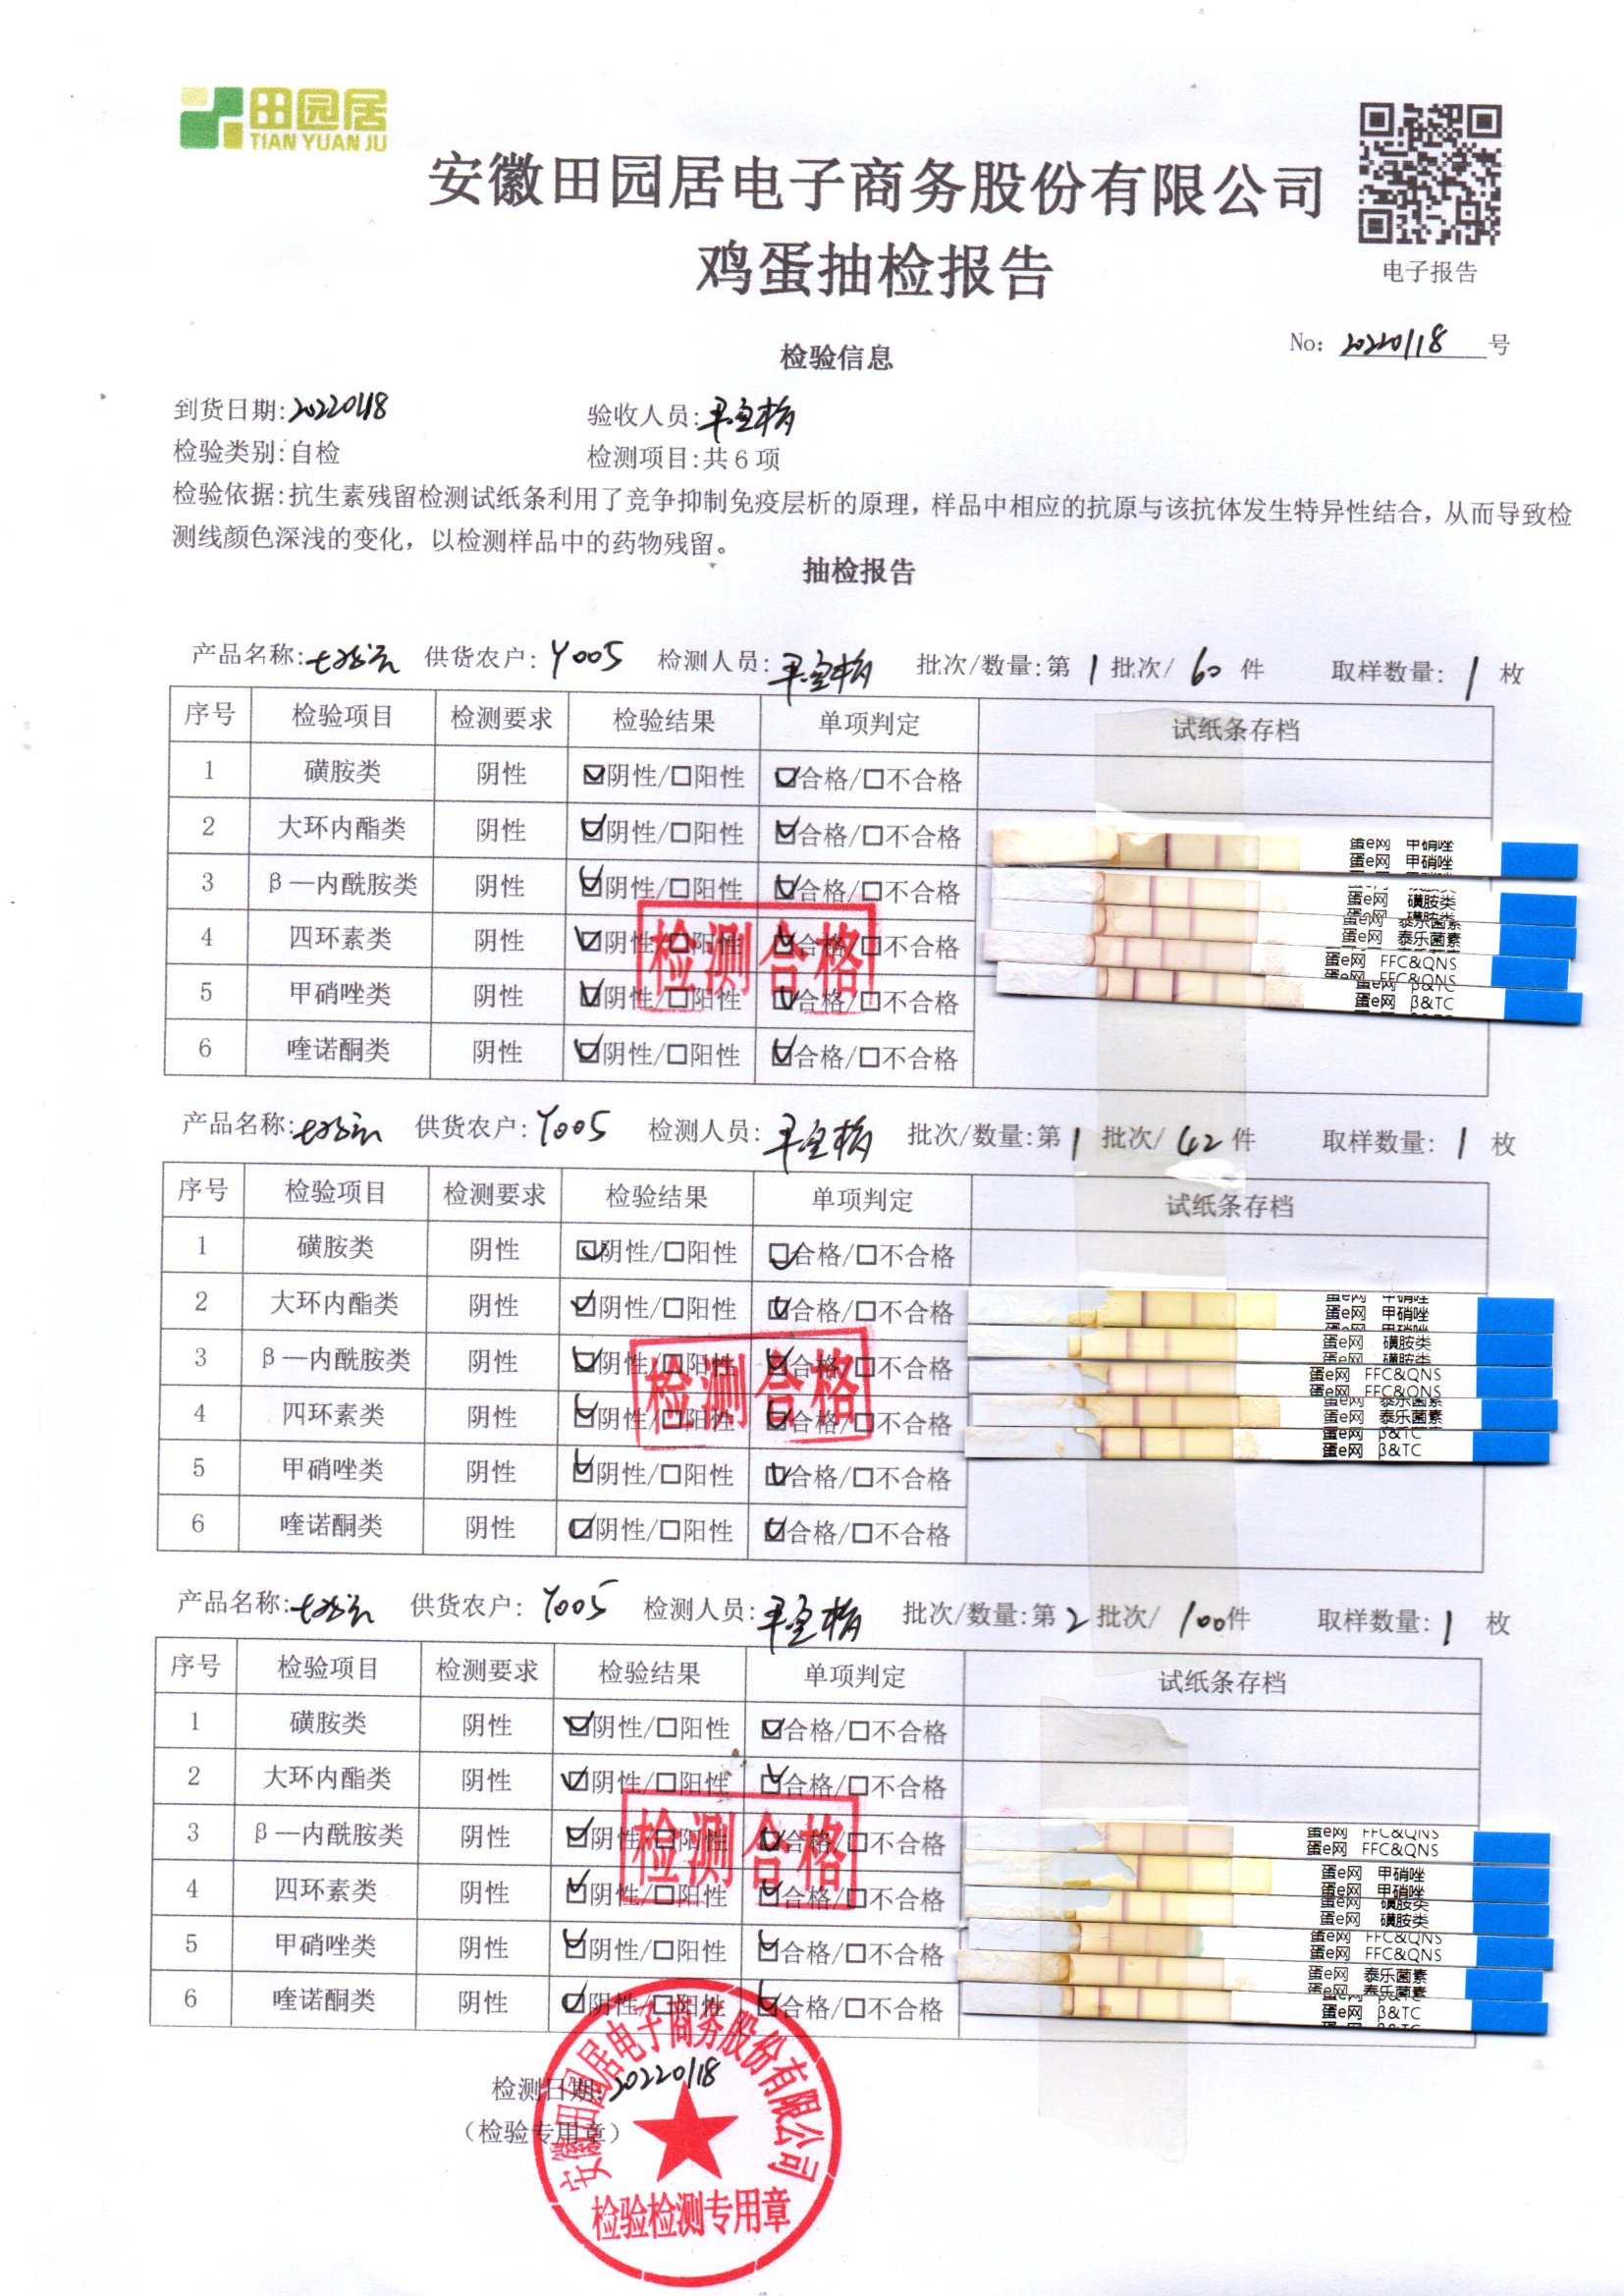 田园居
TIAN YUAN JU
安徽田园居电子商务股份有限公司
鸡蛋抽检报告
电子报告
No: 20220118 号
检验信息
到货日期:20220118 验收人员:
检验类别:自检 检测项目:共6项
检验依据:抗生素残留检测试纸条利用了竞争抑制免疫层析的原理，样品中相应的抗原与该抗体发生特异性结合，从而导致检
测线颜色深浅的变化，以检测样品中的药物残留。
抽检报告
产品名称: 供货农户: Y005 检测人员: 批次/数量:第 1 批次/ 60 件 取样数量: 1 枚
序号 检验项目 检测要求 检验结果 单项判定 试纸条存档
1 磺胺类 阴性 ☑阴性/□阳性 ☑合格/□不合格
2 大环内酯类 阴性 ☑阴性/□阳性 ☑合格/□不合格
3 β—内酰胺类 阴性 ☑阴性/□阳性 ☑合格/□不合格
4 四环素类 阴性 ☑阴性/□阳性 ☑合格/□不合格
5 甲硝唑类 阴性 ☑阴性/□阳性 ☑合格/□不合格
6 喹诺酮类 阴性 ☑阴性/□阳性 ☑合格/□不合格
检测合格
蛋e网 甲硝唑
蛋e网 甲硝唑
蛋e网 磺胺类
蛋e网 磺胺类
蛋e网 泰乐菌素
蛋e网 FFC&QNS
蛋e网 FFC&QNS
蛋e网 β&TC
蛋e网 β&TC
产品名称: 供货农户: Y005 检测人员: 批次/数量:第 1 批次/ 42 件 取样数量: 1 枚
序号 检验项目 检测要求 检验结果 单项判定 试纸条存档
1 磺胺类 阴性 ☑阴性/□阳性 ☑合格/□不合格
2 大环内酯类 阴性 ☑阴性/□阳性 ☑合格/□不合格
3 β—内酰胺类 阴性 ☑阴性/□阳性 ☑合格/□不合格
4 四环素类 阴性 ☑阴性/□阳性 ☑合格/□不合格
5 甲硝唑类 阴性 ☑阴性/□阳性 ☑合格/□不合格
6 喹诺酮类 阴性 ☑阴性/□阳性 ☑合格/□不合格
检测合格
蛋e网 甲硝唑
蛋e网 甲硝唑
蛋e网 甲硝唑
蛋e网 磺胺类
蛋e网 磺胺类
蛋e网 FFC&QNS
蛋e网 FFC&QNS
蛋e网 泰乐菌素
蛋e网 泰乐菌素
蛋e网 β&TC
蛋e网 β&TC
产品名称: 供货农户: Y005 检测人员: 批次/数量:第 2 批次/ 100 件 取样数量: 1 枚
序号 检验项目 检测要求 检验结果 单项判定 试纸条存档
1 磺胺类 阴性 ☑阴性/□阳性 ☑合格/□不合格
2 大环内酯类 阴性 ☑阴性/□阳性 ☑合格/□不合格
3 β—内酰胺类 阴性 ☑阴性/□阳性 ☑合格/□不合格
4 四环素类 阴性 ☑阴性/□阳性 ☑合格/□不合格
5 甲硝唑类 阴性 ☑阴性/□阳性 ☑合格/□不合格
6 喹诺酮类 阴性 ☑阴性/□阳性 ☑合格/□不合格
检测合格
蛋e网 FFC&QNS
蛋e网 FFC&QNS
蛋e网 甲硝唑
蛋e网 甲硝唑
蛋e网 磺胺类
蛋e网 磺胺类
蛋e网 FFC&QNS
蛋e网 FFC&QNS
蛋e网 泰乐菌素
蛋e网 泰乐菌素
蛋e网 β&TC
检测日期: 20220118
（检验专用章）
安徽田园居电子商务股份有限公司
检验检测专用章